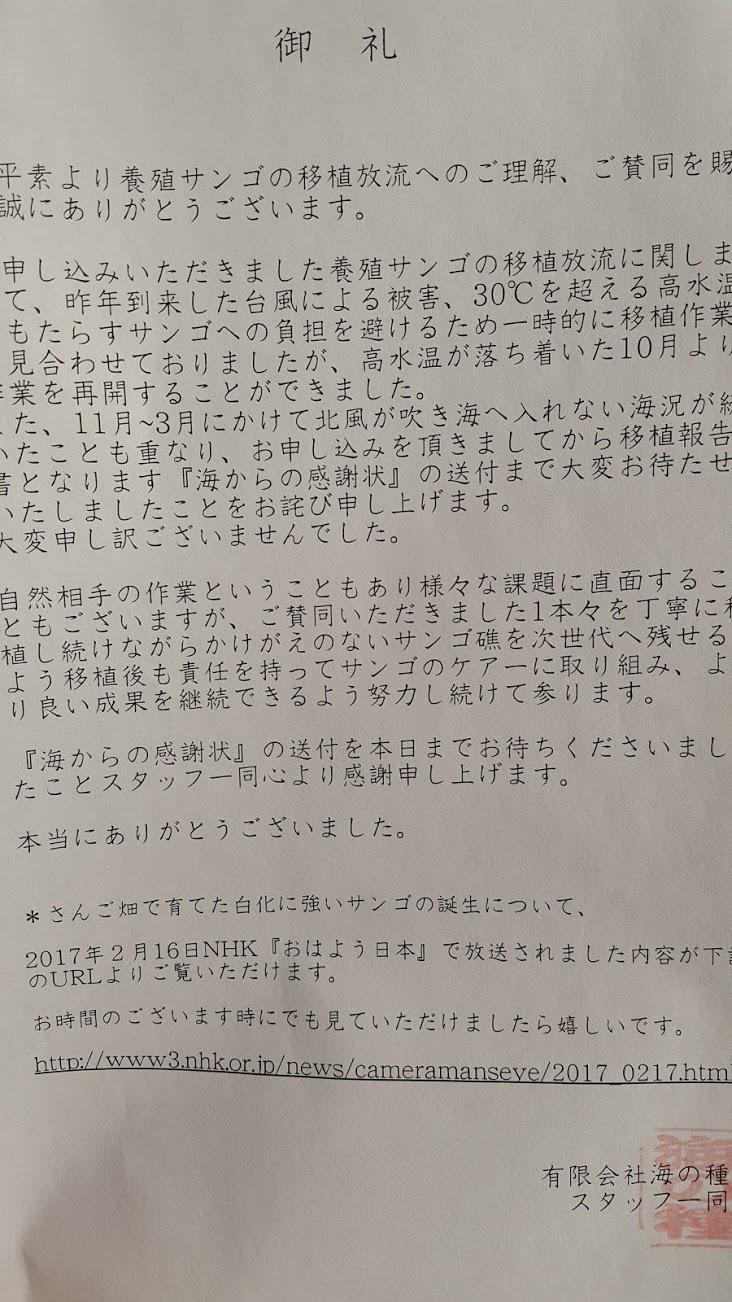 御 礼
平素より養殖サンゴの移植放流へのご理解、ご賛同を賜
誠にありがとうございます。
申し込みいただきました養殖サンゴの移植放流に関しま
て、昨年到来した台風による被害、30℃を超える高水温
もたらすサンゴへの負担を避けるため一時的に移植作業
見合わせておりましたが、高水温が落ち着いた10月より
業を再開することができました。
た、11月~3月にかけて北風が吹き海へ入れない海況が続
いたことも重なり、お申し込みを頂きましてから移植報告
書となります『海からの感謝状』の送付まで大変お待たせ
いたしましたことをお詫び申し上げます。
大変申し訳ございませんでした。
自然相手の作業ということもあり様々な課題に直面するこ
ともございますが、ご賛同いただきました1本々を丁寧に移
植し続けながらかけがえのないサンゴ礁を次世代へ残せる
よう移植後も責任を持ってサンゴのケアーに取り組み、よ
り良い成果を継続できるよう努力し続けて参ります。
『海からの感謝状』の送付を本日までお待ちくださいまし
たことスタッフ一同心より感謝申し上げます。
本当にありがとうございました。
＊さんご畑で育てた白化に強いサンゴの誕生について、
2017年２月16日NHK『おはよう日本』で放送されました内容が下記
のURLよりご覧いただけます。
お時間のございます時にでも見ていただけましたら嬉しいです。
http://www3.nhk.or.jp/news/cameramanseye/2017_0217.html
有限会社海の種
スタッフ一同
海の種